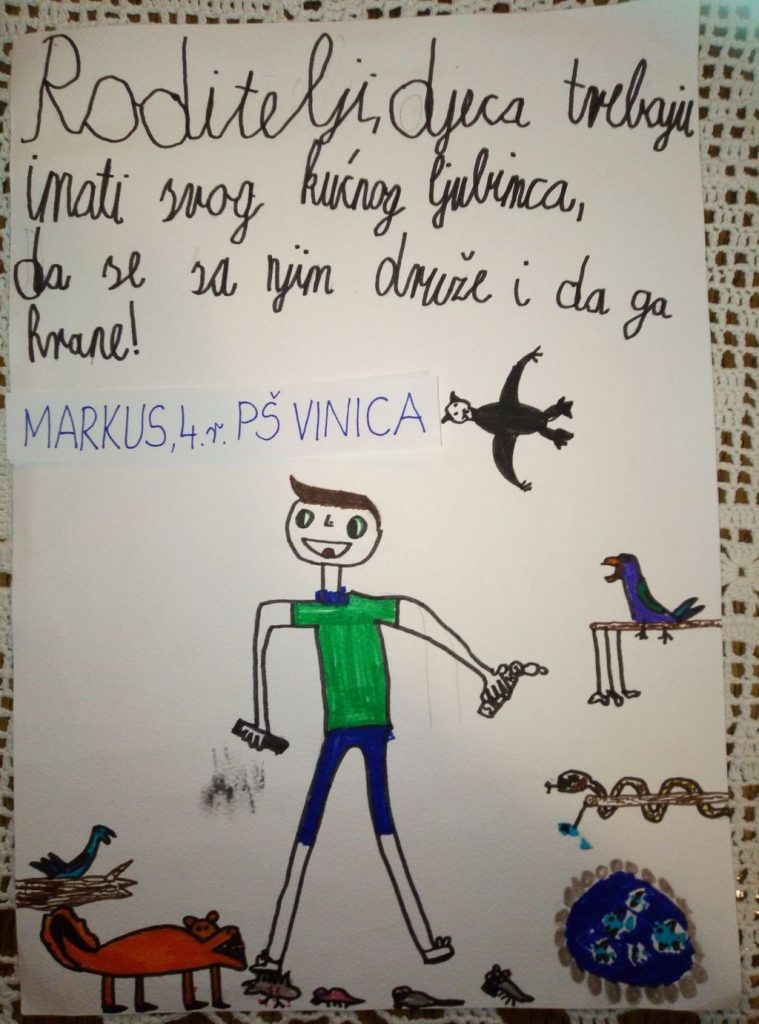 Roditelji, djeca trebaju
imati svog kućnog ljubimca,
da se sa njim druže i da ga
hrane!
MARKUS, 4. r. PŠ VINICA